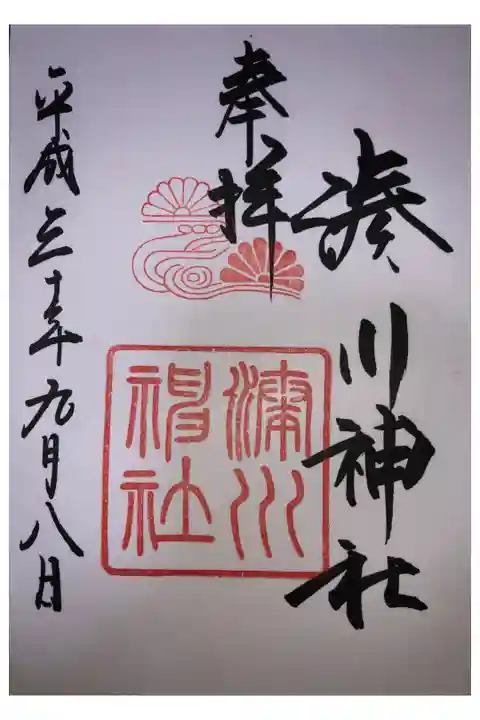 湊川神社
奉拝
平成三十年九月八日
湊川
神社